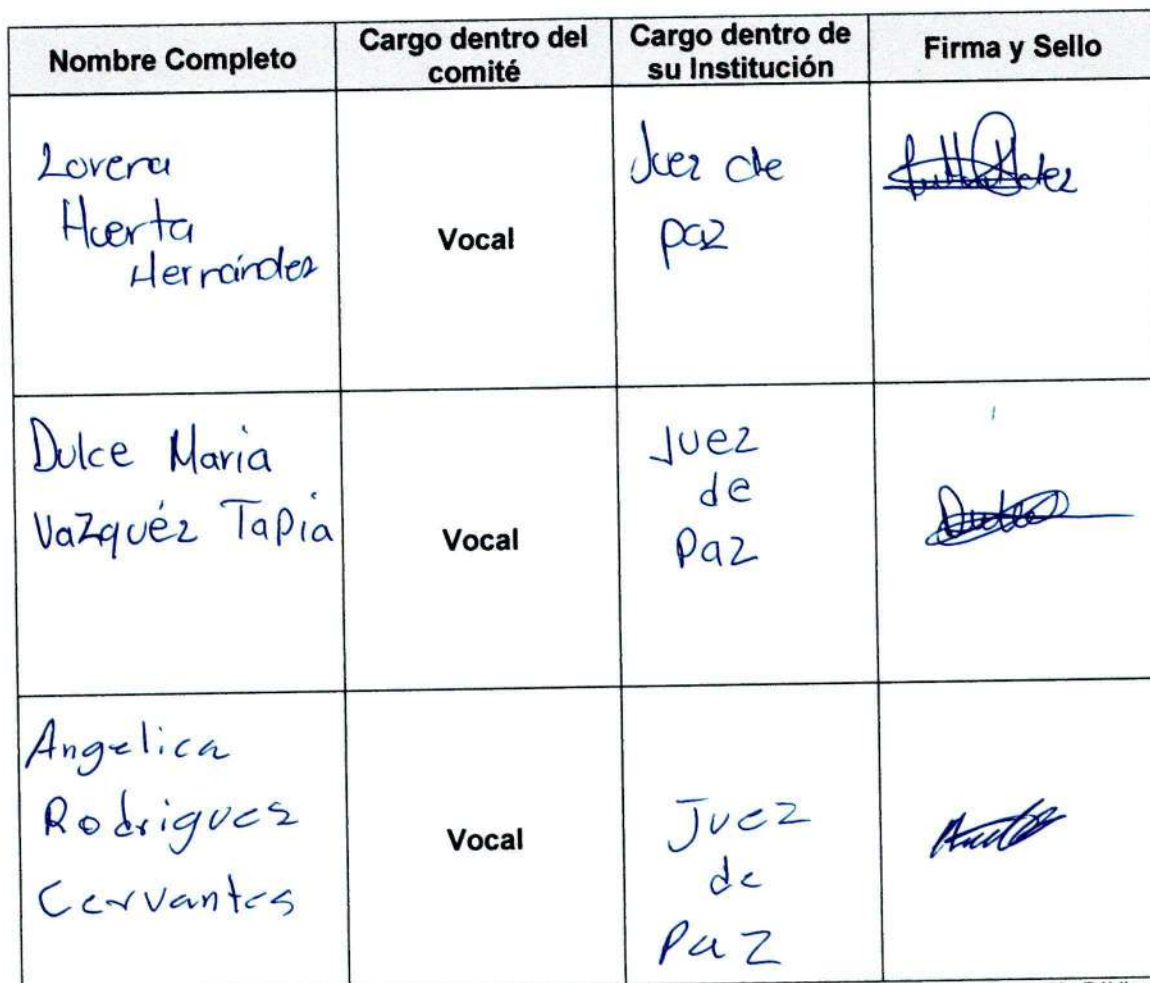 Nombre Completo
Cargo dentro del
comité
Cargo dentro de
su Institución
Firma y Sello
Lorena
Huerta
Hernández
Vocal
Juez de
paz
Dulce Maria
VaZquéz Tapia
Vocal
Juez
de
Paz
Angelica
Rodriguez
Cervantes
Vocal
Juez
de
Paz